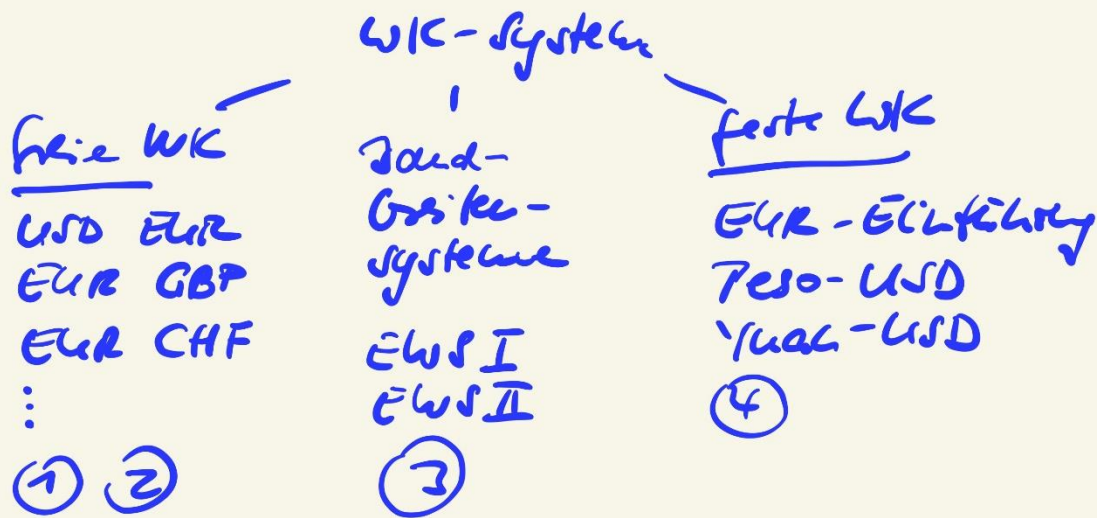 WK-System
freie WK
USD EUR
EUR GBP
EUR CHF
⋮
① ②
Band-
breiten-
systeme
EWS I
EWS II
③
feste WK
EUR-Einführung
Peso-USD
Yuan-USD
④